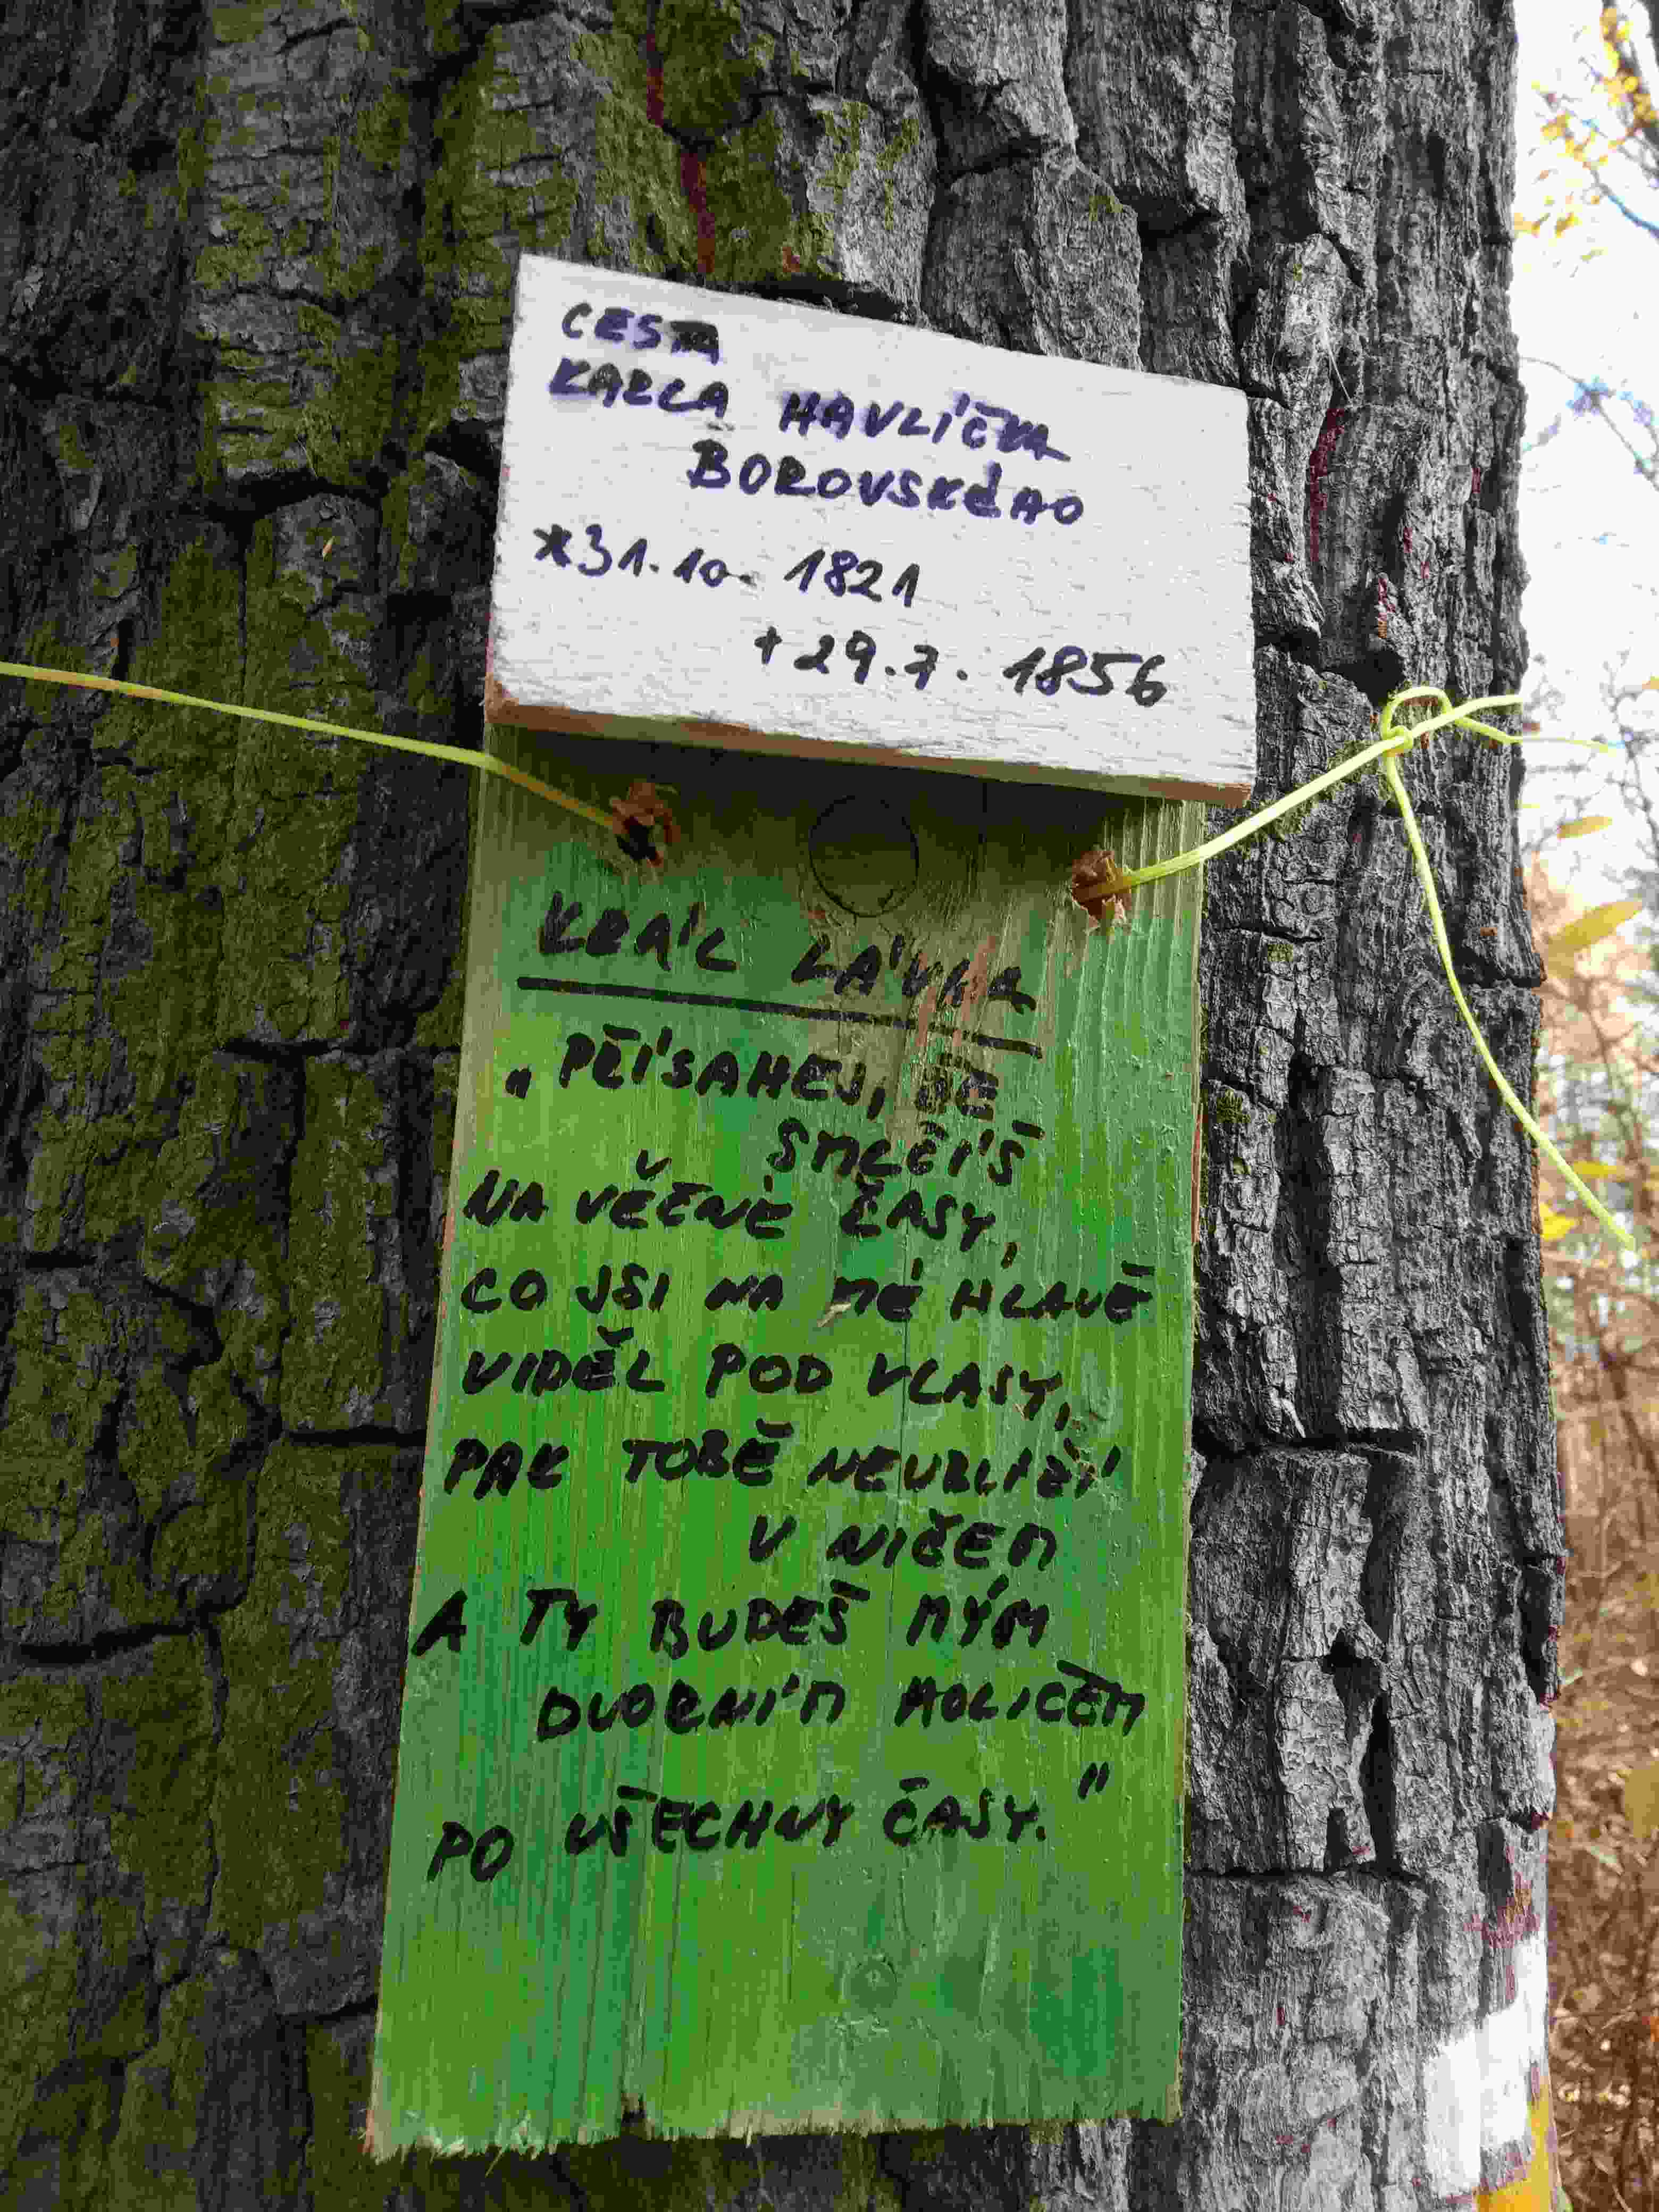 CESTA
KARLA HAVLÍČKA
BOROVSKÉHO
*31.10. 1821
+29.7. 1856
KRÁL LÁVRA
„PŘÍSAHEJ, ŽE
SMLČÍŠ
NA VĚČNÉ ČASY,
CO JSI NA MÉ HLAVĚ
VIDĚL POD VLASY,
PAK TOBĚ NEUBLIŽÍ
V NIČEM
A TY BUDEŠ MÝM
DVORNÍM HOLIČEM
PO VŠECHNY ČASY."